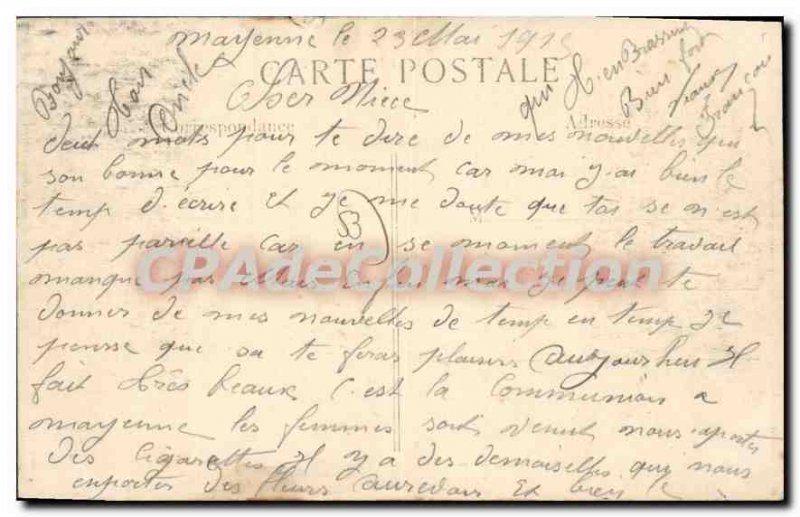 Mayenne le 23 Mai 191
CARTE POSTALE
Cher Niece
Correspondance
Adresse
deux mots pour te dire de mes nouvelles qui
son bonne pour le moment car moi j'ai bien le
temp d'écrire et je me doute que toi se n'est
pas pareille car en se moment le travail
manque pas enfin moi je peut te
donner de mes nouvelles de temp en temp je
pensse que sa te feras plaisirs aujourheu il
fait très beaux c'est la Communion a
mayenne les femmes sont venut nous aporter
des cigarettes il y a des demoiselles qui nous
enportes des fleurs auredoir et bien le
Bonjour
qui t'en Brassent
Bien fort
François
53
CPAdeCollection.com